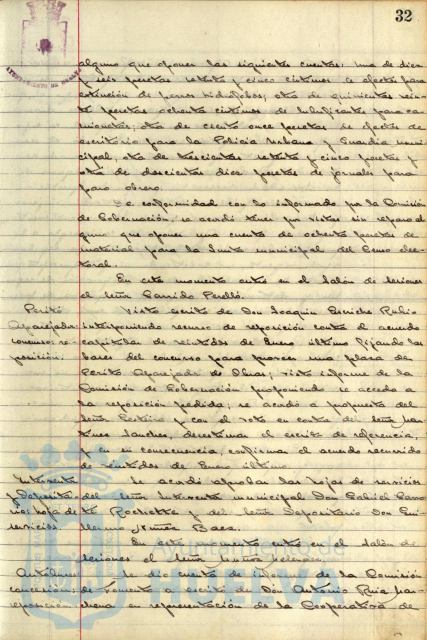 32
AYUNTAMIENTO DE HUELVA
alguno que oponer las siguientes cuentas: una de diez
y seis pesetas setenta y cinco céntimos de efectos para
extinción de perros hidrófobos; otra de quinientas vein-
te pesetas ochenta céntimos de lubrificantes para ca-
mionetas; otra de ciento once pesetas de efectos de
escritorio para la Policia Urbana y Guardia muni-
cipal, otra de trescientas setenta y cinco pesetas y
otra de doscientas diez pesetas de jornales para
paro obrero.
De conformidad con lo informado por la Comisión
de Gobernación, se acordó tener por vistas sin reparo al
guno que oponer una cuenta de ochenta pesetas de
material para la Junta municipal del Censo elec-
toral.
En este momento entra en el Salón de Sesiones
el Señor Garrido Perelló.
Perito
Aparejador
concurso: re-
posición.
Visto escrito de Don Joaquin Rubio
interponiendo recurso de reposición contra el acuerdo
capitular de veintidos de Enero último fijando las
bases del concurso para proveer una plaza de
Perito Aparejador de Obras; visto informe de la
Comisión de Gobernación proponiendo se acceda a
la reposición pedida; se acordó a propuesta del
Señor y con el voto en contra del Señor Mar-
tinez Sanchez, desestimar el escrito de referencia,
y en su consecuencia, confirmar el acuerdo recurrido
de veintidos de Enero último.
Interventor
y Depositario
hojas de
servicios.
Se acordó aprobar las hojas de servicios
del Señor Interventor municipal Don Gabriel
de Rochette y del Señor Depositario Don Gui-
llermo Nuñez Baez.
En este momento entra en el Salón de
Sesiones el Señor Muñoz
Autobuses
concesion:
reposición
Se dio cuenta de informe de la Comisión
de Fomento a escrito de Don Antonio Ruiz Mar-
chena en representación de la Cooperativa de
Ayuntamiento de
HUELVA